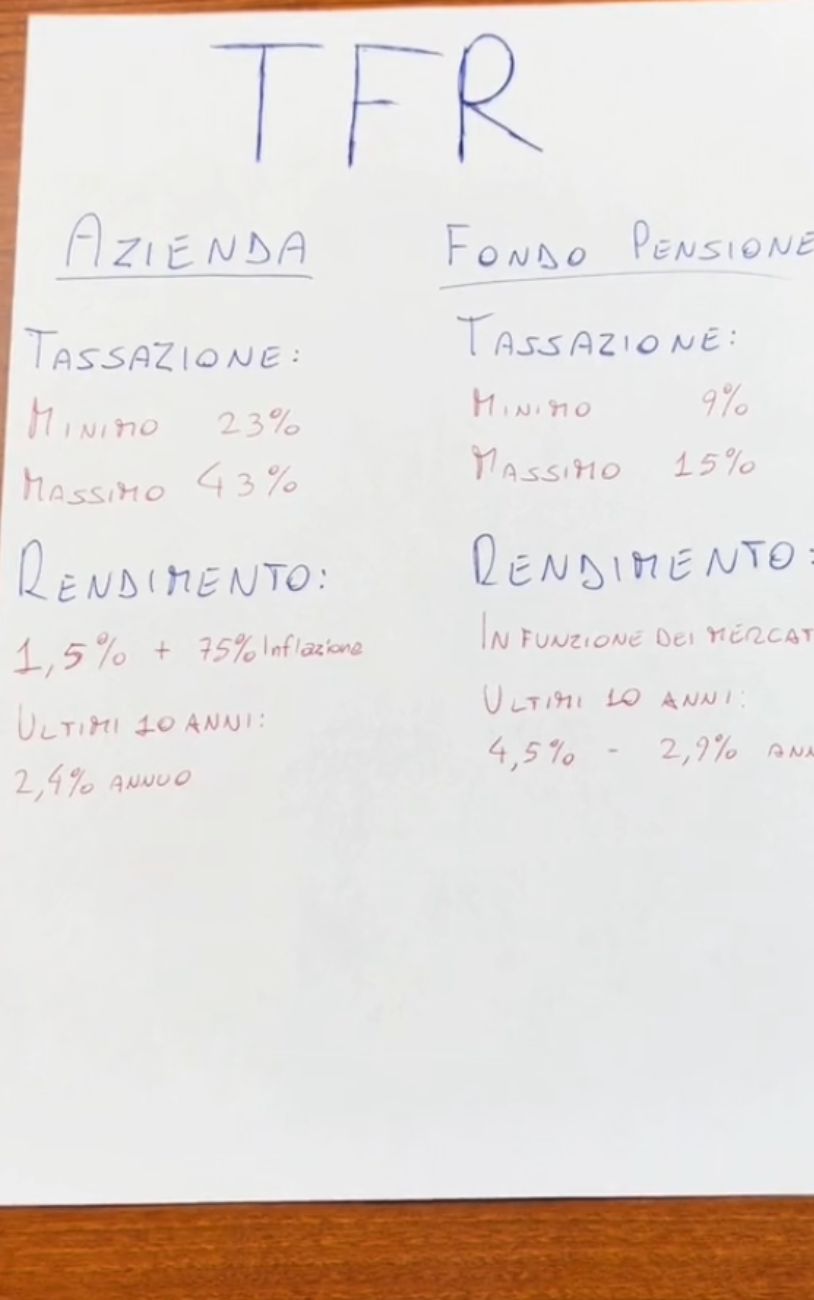 TFR
AZIENDA
TASSAZIONE:
MINIMO 23%
MASSIMO 43%
RENDIMENTO:
1,5% + 75% Inflazione
ULTIMI 10 ANNI:
2,4% ANNUO
FONDO PENSIONE
TASSAZIONE:
MINIMO 9%
MASSIMO 15%
RENDIMENTO:
IN FUNZIONE DEI MERCAT
ULTIMI 10 ANNI:
4,5% - 2,9% ANN